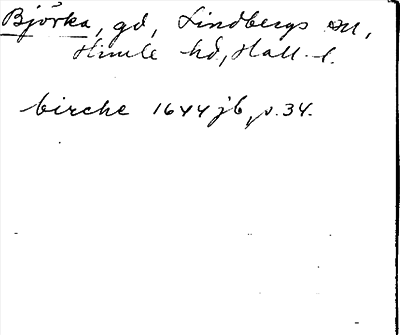 Björka, gd, Lindbergs sn,
Himle hd, Hall. l.
birche 1644 jb, p. 34.